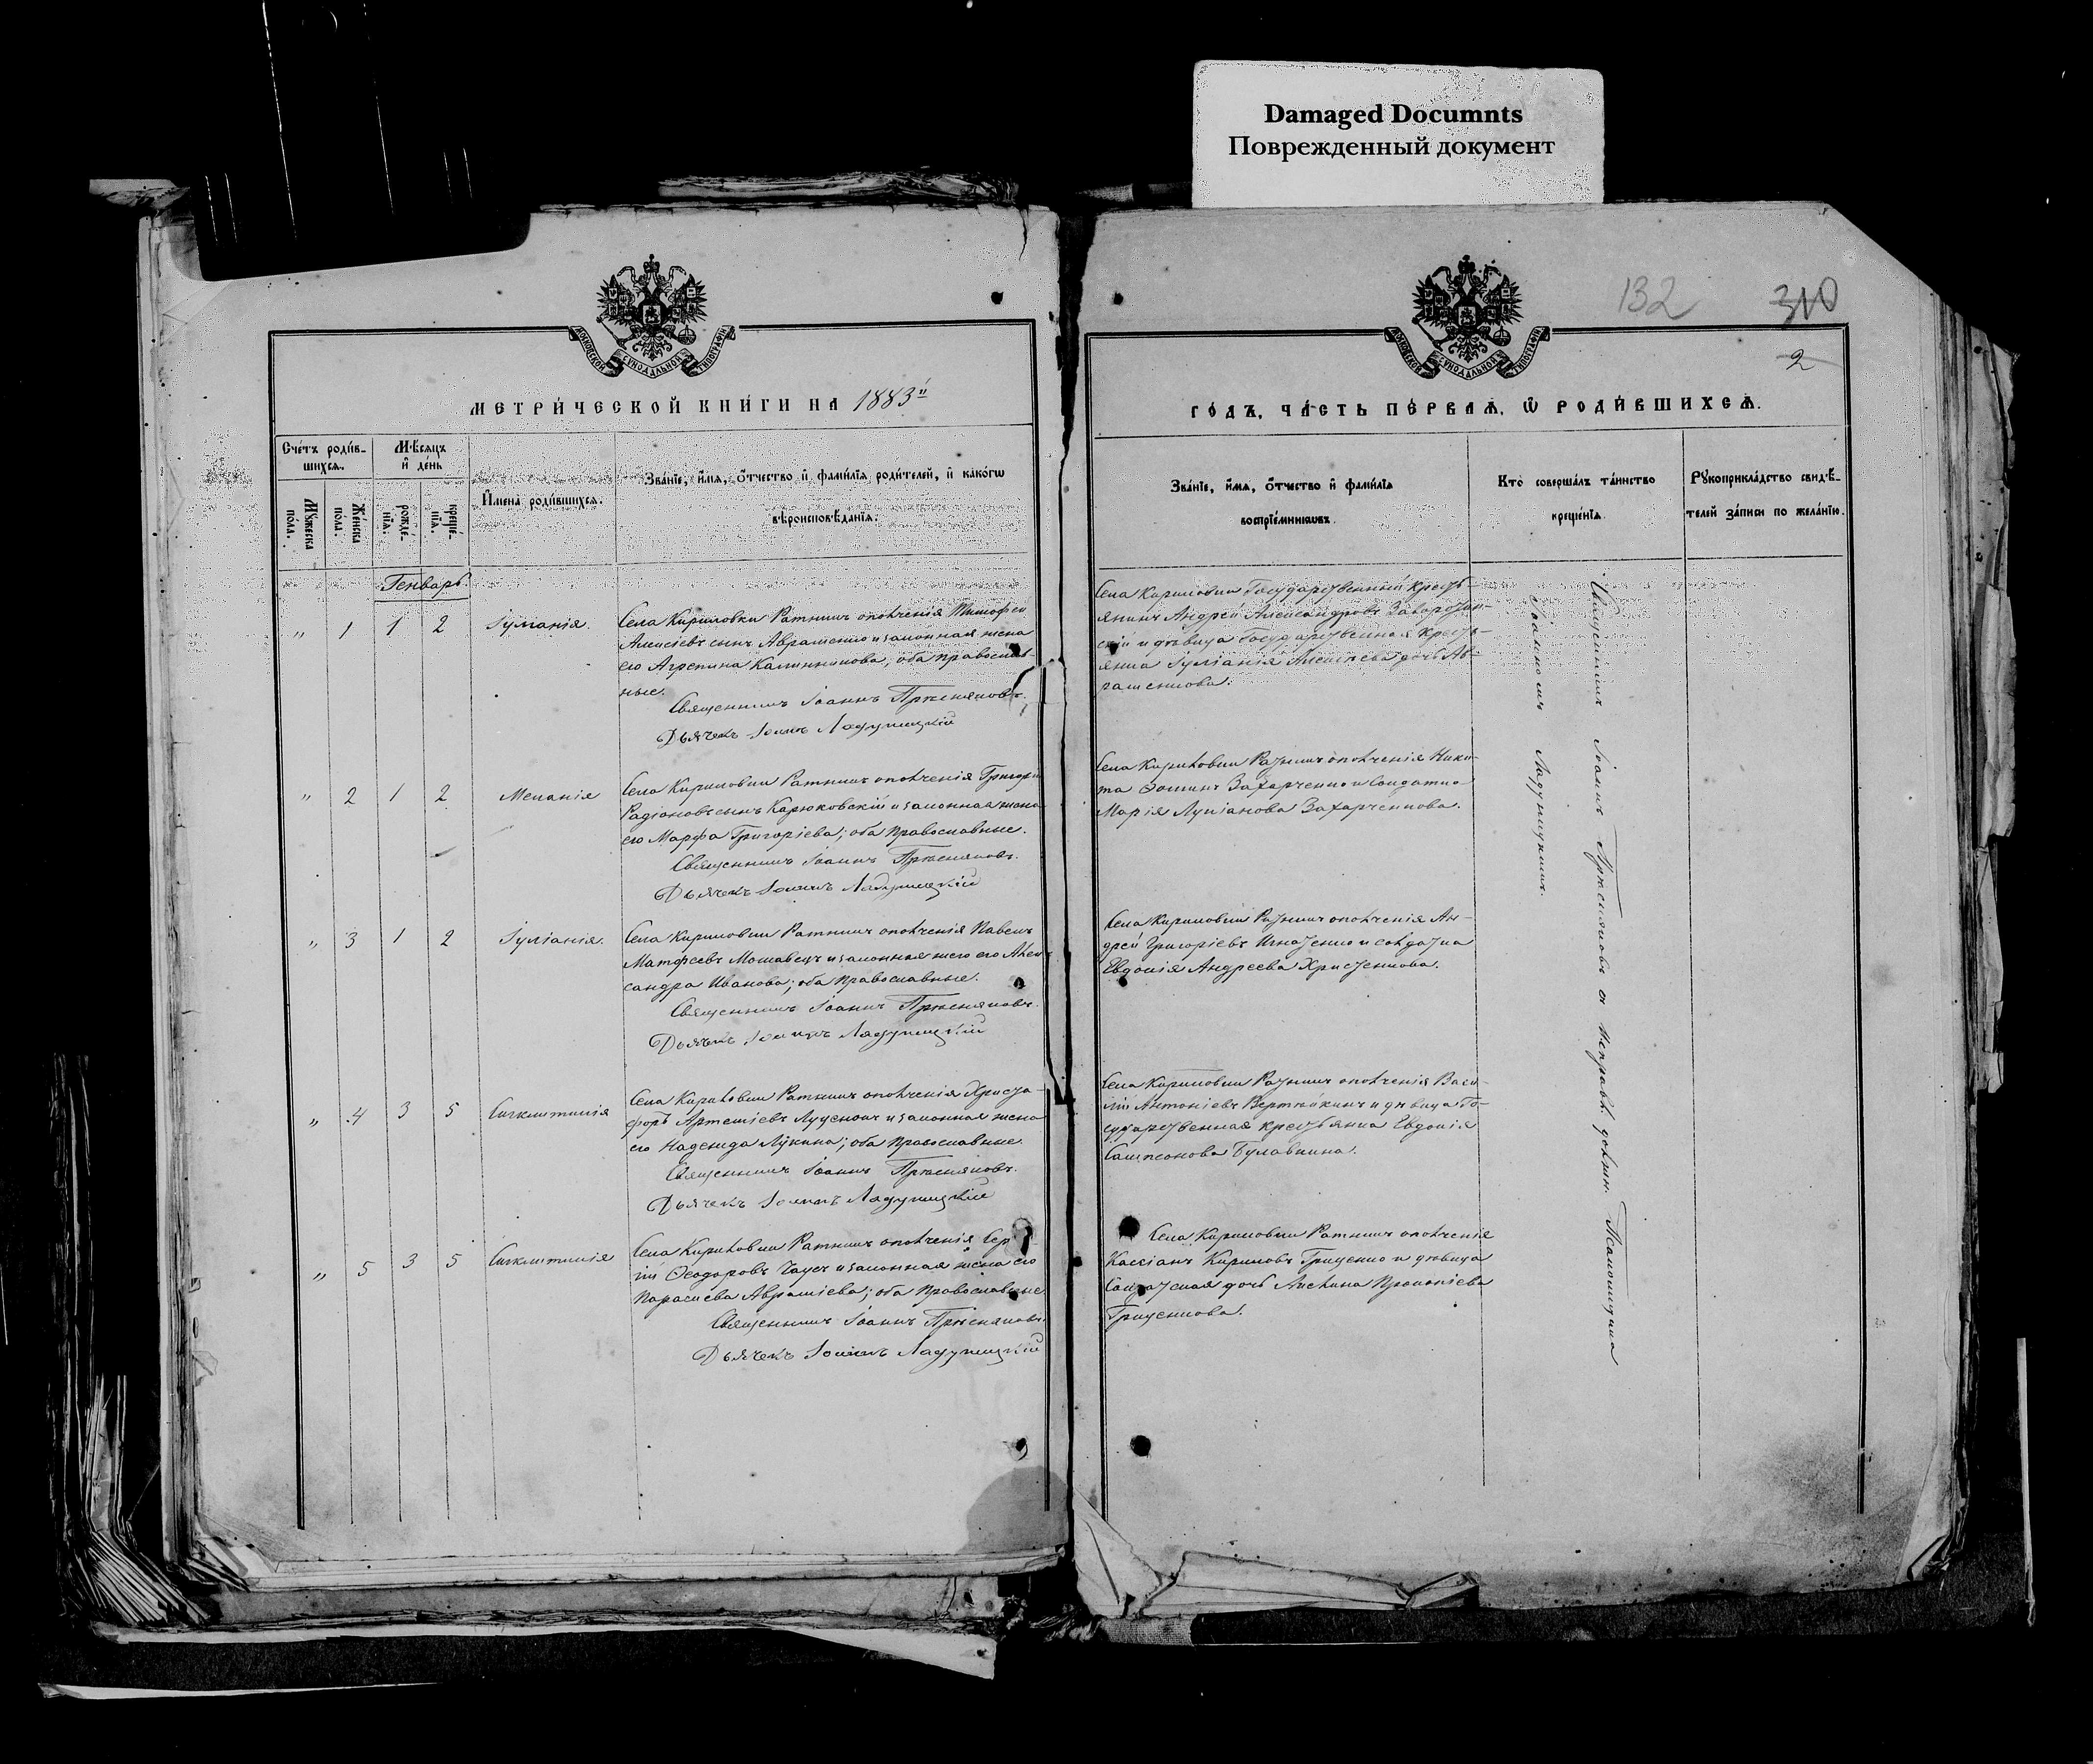 Damaged Documnts
Поврежденный документ
132
310
2
МОСКОВСКОЙ СѴНОДАЛЬНОЙ ТИПОГРАФІИ
МОСКОВСКОЙ СѴНОДАЛЬНОЙ ТИПОГРАФІИ
МЕТРИ́ЧЕСКОЙ КНИ́ГИ НА 1883й
ГО́ДЪ, ЧА́СТЬ ПЕ́РВАѦ, Ѿ РОДИ́ВШИХСѦ.
Сче́тъ роди́в-
шихсѧ.
Мꙋ́жеска
по́ла.
Же́нска
по́ла.
Мѣ́сяцъ
и҆ де́нь
рожде́-
нїѧ.
креще́-
нїѧ.
И҆мена̀ роди́вшихсѧ.
Зва́нїе, и҆́мѧ, ѻ҆́тчество и҆ фами́лїѧ роди́телей, и҆ како́гѡ
вѣроисповѣ́данїѧ.
Зва́нїе, и҆́мѧ, ѻ҆́тчество и҆ фами́лїѧ
воспрїе́мникѡвъ.
Кто̀ соверша́лъ та́инство
креще́нїѧ.
Рꙋкоприкла́дство свидѣ́-
телей за́писи по жела́нїю.
Генварь
" 1 1 2 Іуліанія.
Села Кириловки Ратникъ ополченія Тимофей
Алексіевъ сынъ Авраменко и законная жена
его Агрепина Калинникова; оба православ-
ные.
Священникъ Іоаннъ Прѣсняковъ.
Дьячекъ Іоаннъ Ладухицкій
Села Кириловки Государственный кресть-
янинъ Андрей Александровъ
и дѣвица Государственная кресть-
янка Іуліанія дочь Ав-
раменкова.
" 2 1 2 Меланія
Села Кириловки Ратникъ ополченія Григорій
Радіоновъ сынъ Карюковскій и законная жена
его Марфа Григоріева; оба православные.
Священникъ Іоаннъ Прѣсняковъ.
Дьячекъ Іоаннъ Ладухицкій
Села Кириловки Ратникъ ополченія Ники-
та Фоминъ Захарченко и Солдатка
Марія Лукіанова Захарченкова.
" 3 1 2 Іуліанія.
Села Кириловки Ратникъ ополченія Павелъ
Матфеевъ и законная жена его Алек-
сандра Иванова; оба православные.
Священникъ Іоаннъ Прѣсняковъ.
Дьячекъ Іоаннъ Ладухицкій
Села Кириловки Ратникъ ополченія Ан-
дрей Григоріевъ Игнатенко и солдатка
Евдокія Андреева Христенкова.
" 4 3 5 Сигклитикія
Села Кириловки Ратникъ ополченія Христо-
форъ Артеміевъ Луценко и законная жена
его Надежда Лукина; оба православные.
Священникъ Іоаннъ Прѣсняковъ.
Дьячекъ Іоаннъ Ладухицкій
Села Кириловки Ратникъ ополченія Васи-
лій Антоніевъ и дѣвица Го-
сударственная крестьянка Евдокія
Сампсонова Булавкина.
" 5 3 5 Сигклитикія
Села Кириловки Ратникъ ополченія Сер-
гій Ѳеодоровъ Чаусъ и законная жена его
Параскева Авраміева; оба православные
Священникъ Іоаннъ Прѣсняковъ.
Дьячекъ Іоаннъ Ладухицкій
Села Кириловки Ратникъ ополченія
Кассіанъ Кириловъ Гриценко и дѣвица
Солдатская дочь Акилина Прокопіева
Гриценкова.
Священникъ Іоаннъ Прѣсняковъ съ исправл. должн. Псаломщика
Іоанномъ Ладухицкимъ.